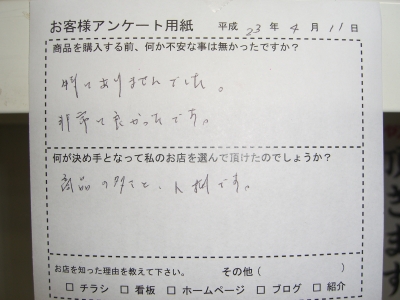 お客様アンケート用紙 平成 23 年 4 月 11 日
商品を購入する前、何か不安な事は無かったですか？
特にありませんでした。
非常に良かったです。
何が決め手となって私のお店を選んで頂けたのでしょうか？
商品の多さと、人柄です。
お店を知った理由を教えて下さい。 その他（ ）
□ チラシ □ 看板 □ ホームページ □ ブログ □ 紹介
頂きます